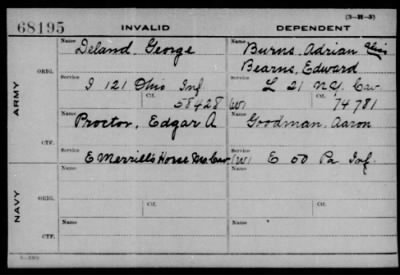 (3-21-5)
68195 INVALID DEPENDENT
Name Name
Deland, George Burns, Adrian
Bearns, Edward
ARMY ORIG. Service Service
I 121 Ohio Inf L 21 N.Y. Cav
Ctf. Ctf.
58428 (W) 74781
Name Name
Proctor, Edgar A Goodman, Aaron
CTF. Service Service
E Merrill's Horse Mo Cav (W) E 50 Pa Inf
NAVY ORIG. Name Ctf. Name Ctf.
CTF. Name Name